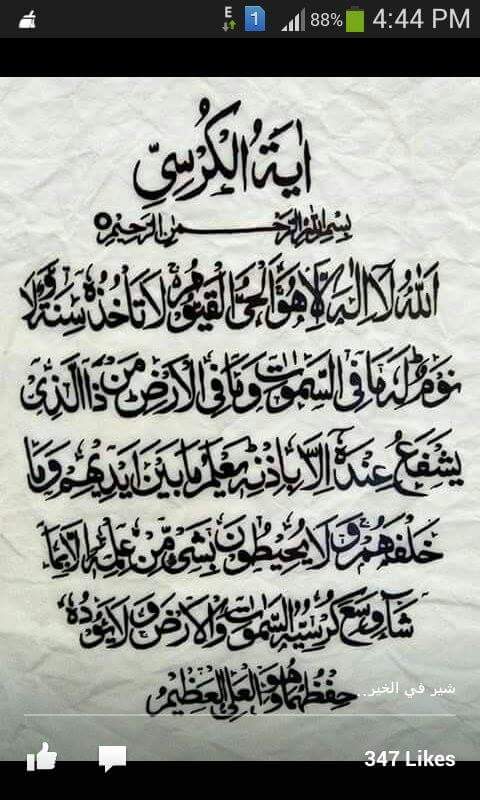 E
1
88%
4:44 PM
اٰيَةُ الْكُرْسِيِّ
بِسْمِ اللهِ الرَّحْمٰنِ الرَّحِيْمِ
اَللهُ لَا اِلٰهَ اِلَّا هُوَ الْحَيُّ الْقَيُّوْمُ لَا تَاْخُذُهٗ سِنَةٌ وَّلَا
نَوْمٌ لَهٗ مَا فِي السَّمٰوٰتِ وَمَا فِي الْاَرْضِ مَنْ ذَا الَّذِيْ
يَشْفَعُ عِنْدَهٗ اِلَّا بِاِذْنِهٖ يَعْلَمُ مَا بَيْنَ اَيْدِيْهِمْ وَمَا
خَلْفَهُمْ وَلَا يُحِيْطُوْنَ بِشَيْءٍ مِّنْ عِلْمِهٖ اِلَّا بِمَا
شَآءَ وَسِعَ كُرْسِيُّهُ السَّمٰوٰتِ وَالْاَرْضَ وَلَا يَئُوْدُهٗ
حِفْظُهُمَا وَهُوَ الْعَلِيُّ الْعَظِيْمُ
شير في الخير..
347 Likes